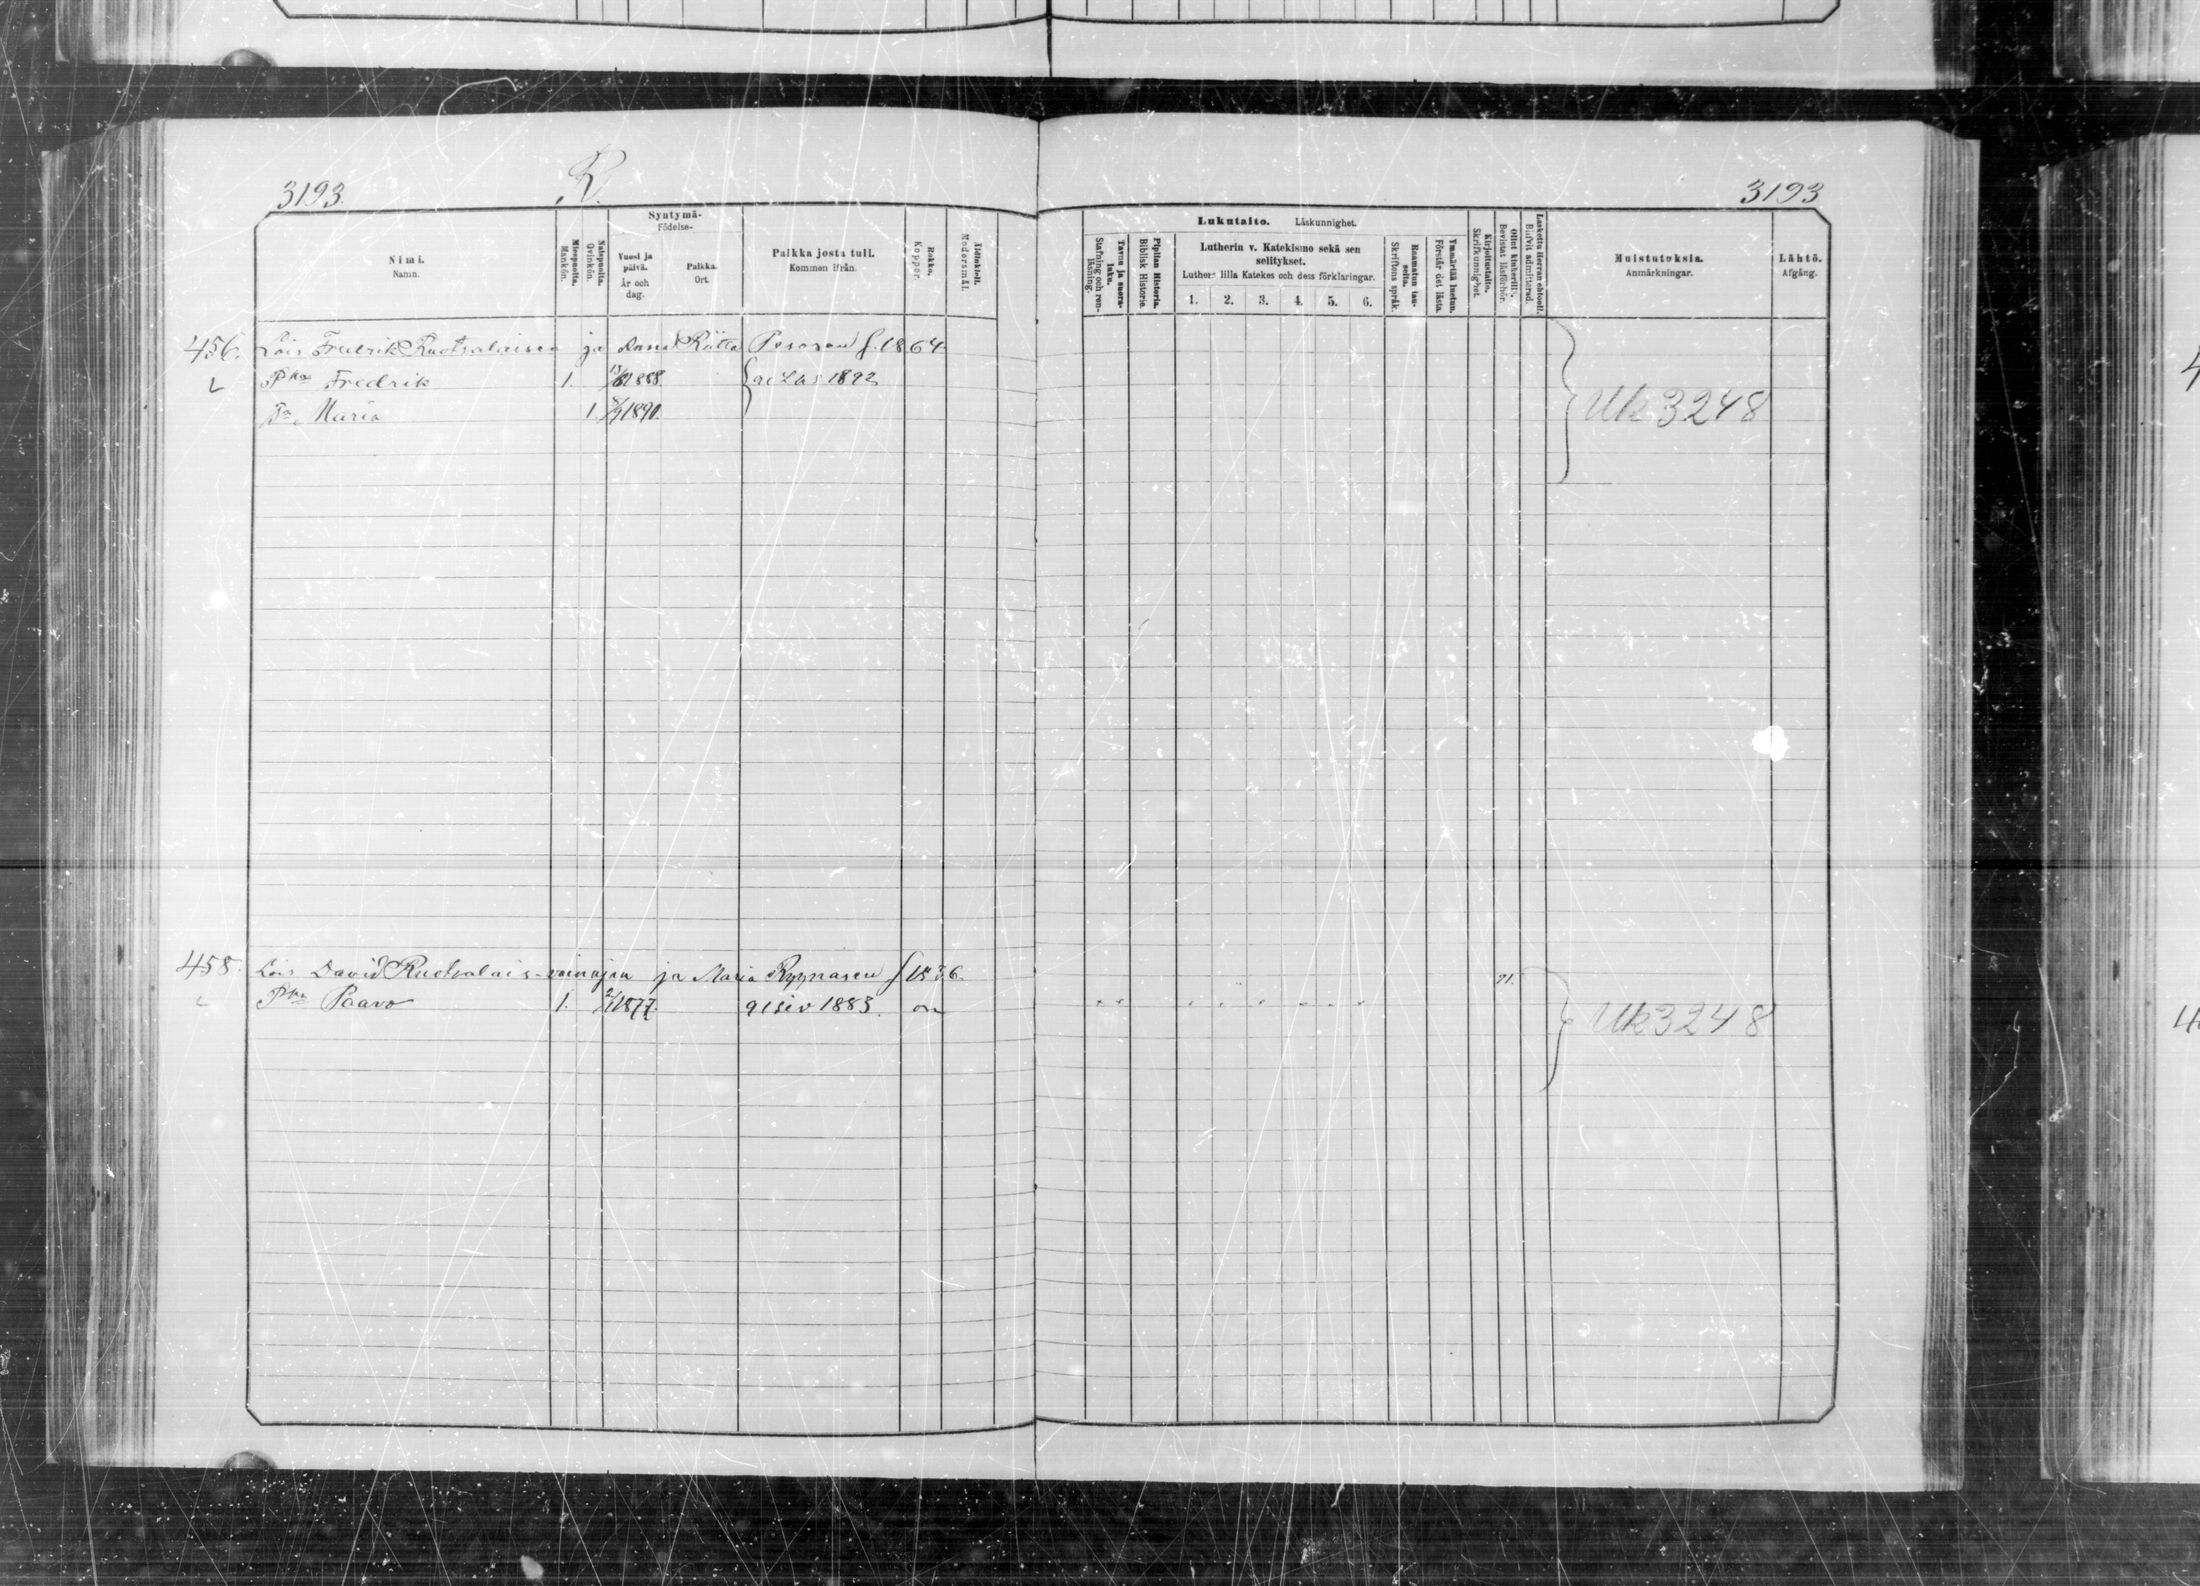 3193.
R.
3193
Nimi.
Namn.
Miespuolia.
Mankön.
Naispuolia.
Qvinkön.
Syntymä-
Födelse-
Vuosi ja
päivä.
År och
dag.
Paikka.
Ort.
Paikka josta tuli.
Kommen ifrån.
Rokko.
Koppor.
Äidinkieli.
Modersmål.
Tavuu ja suora-
luku.
Stafning och ren-
läsning.
Piplian Historia.
Biblisk Historie.
Lukutaito. Läskunnighet.
Lutherin v. Katekismo sekä sen
selitykset.
Luthers lilla Katekes och dess förklaringar.
1. 2. 3. 4. 5. 6.
Raamatun lau-
seita.
Skriftens språk.
Ymmärtää luetun.
Förstår det lästa.
Kirjoitustaito.
Skrifkunnighet.
Ollut kinkerillä.
Bevistat läsförhör.
Laskettu Herran ehtoolle.
Blifvit admitterad.
Muistutuksia.
Anmärkningar.
Lähtö.
Afgång.
456. Lois Fredrik Ruotsalaisen ja Anna Riitta Pesosen f. 1864.
Pka Fredrik 1. 1888. 1892
Tr Maria 1. 1890.
Uk 3248
458. Lois David Ruotsalais-vainajan ja Maria Ryynäsen f 1836.
Pka Paavo 1. 1877. 91 siv 1883. on
91.
Uk 3248